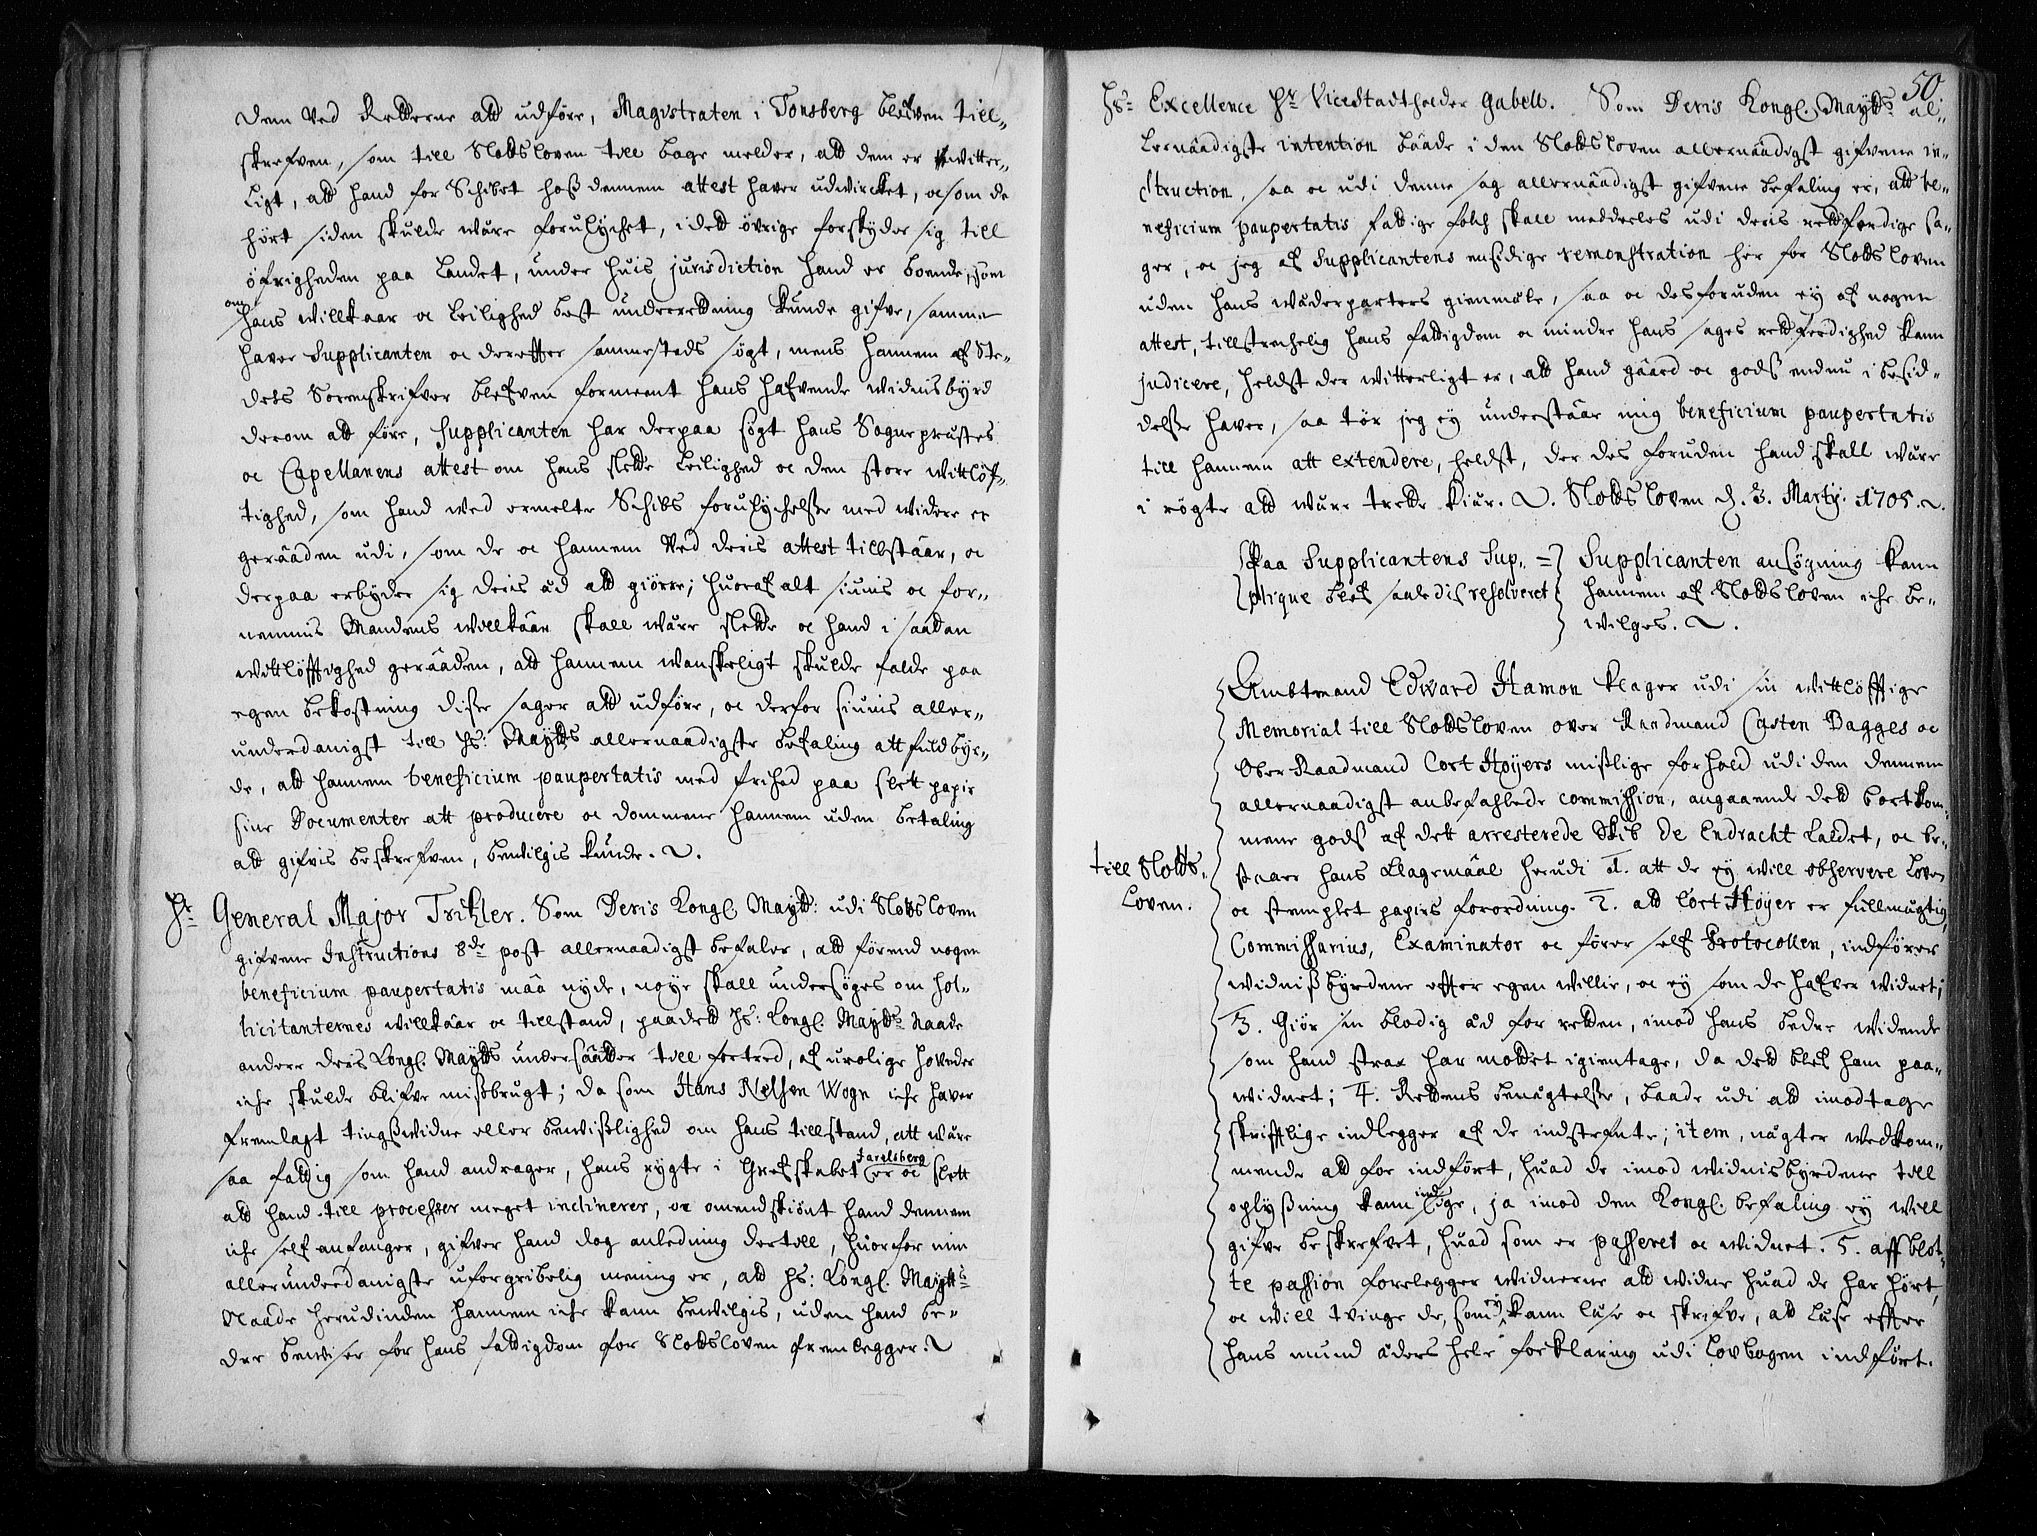 dem ved Retterne att udføre, Magistraten i Tonsberg blefven till-
skrefven, som till Slotsloven till bage melder, att dem er witter-
ligt, att hand for Schibet hoß dennem attest haver udvircket, oc som de
hørt siden skulde wære forulychet, i dett øvrige forskyder sig till
øfrigheden paa Landet, under huis jurisdiction hand er boende, som
om hans willkaar oc Leilighed best underretning kunde gifve, samme
haver Supplicanten oc derefter sammesteds søgt, mens hannem af Ste-
dets Sorenskrifver blefven formeent hans hafvende widnisbyrd
derom att føre, Supplicanten har derpaa søgt hans Sogneprestes
oc Capellanens attest om hans slette Leilighed oc den store wittløf-
tighed, som hand wed ermelte Schibs forulychelse med widere er
geraaden udi, som de oc hannem ved deris attest tillstaar, oc
derpaa erbyder sig deris æd att giøre; huoraf alt siunis oc for-
nemmis Mandens willkaar skall wære slette oc hand i saadan
wittløfftighed geraaden, att hannem wanskeligt skulde falde paa
egen bekostning disse sager att udføre, oc derfor siunis aller-
underdanigst till Hs: Maytts allernaadigste befaling att fuldbyr-
de, att hannem beneficium paupertatis med frihed paa slett papir
sine Documenter att producere oc dommene hannem uden betaling
att gifvis beskrefven, bevilgis kunde.
Hr General Major Tritzler. Som Deris Kongl. Maytt: udi Slotsloven
gifvene Instructions 8de post allernaadigst befaler, att førend nogen
beneficium paupertatis maa nyde, nøye skall undersøges om sol-
licitanternes willkaar oc tillstand, paadett Hs: Kongl. Maytts Naade
andere deris Kongl. Maytts undersaatter till fortred, af urolige hoveder
iche skulde blifve misbrugt; da som Hans Nielsen Wogn iche haver
fremlagt tingßwidne eller bewißlighed om hans tillstand, att wære
saa fattig som hand andrager, hans rygte i Grefskabet Jarelsberg er oc slett
att hand till processer meget inclinerer, oc omendskiønt hand dennem
iche self anfanger, gifver hand dog anledning dertill, huorfor min
allerunderdanigste uforgribelig mening er, att Hs: Kongl. Maytts
Naade herudinden hannem iche kann bewilgis, uden hand be-
der bewiser for hans fattigdom for Slotsloven fremlegger.
50.
Hs: Excellence Hr Vicestadtholder Gabell. Som Deris Kongl. Maytts al-
lernaadigste intention baade i den Slotsloven allernaadigst gifvene in-
struction, saa oc udi denne sag allernaadigst gifvene befaling er, att be-
neficium paupertatis fattige folch skall meddeeles udi deris rettferdige sa-
ger, oc jeg af Supplicantens ensidige remonstration her for Slotsloven
uden hans wederparters gienmæle, saa oc desforuden ey af nogen
attest, tillstrechelig hans fattigdom oc mindre hans sages rettferdighed kann
judicere, heldst der witterligt er, att hand gaard oc godß endnu i besid-
delse haver, saa tør jeg ey understaar mig beneficium paupertatis
till hannem att extendere, heldst, der des foruden hand skall wære
i røgte att være trette kiær. Slotsloven d. 3. Martij. 1705.
Paa Supplicantens Sup- = Supplicanten ansøgning kann
plique blef saaledis resolveret hannem af Slotsloven iche be-
wilges.
Ambtmand Edward Hamon klager udi sin wittløfftige
Memorial till Slotsloven over Raadmand Casten Bagges oc
Ober Raadmand Cort Høyers mißlige forhold udi den dennem
allernaadigst anbefahlede commission, angaaende dett bortkom-
mene godß af dett arresterede Skib de Endracht Ladet, oc be-
till Slots-
Loven.
staaer hans klagemaal herudi 1. att de ey will observere Loven
oc stemplet papirs forordning. 2. att Cort Høyer er fullmægtig,
Commissarius, Examinator oc fører self Protocollen, indfører
widnißbyrdene effter egen willie, oc ey som de hafver widnet;
3. Giør sin blodig æd for retten, imod hans bedre widende
som hand strax har mottet igientage, da dett blef ham paa-
widnet; 4. Rettens benægtelse, baade udi att imodtage
skrifftlige indlegger af de indstefnte; item, nægter wedkom-
mende att for indført, huad de imod widnisbyrdene till
oplyßning kann indsige, ja imod den Kongl. befaling ey will
gifve beskrefvet, huad som er passeret oc widnet. 5. aff blot-
te passion forelegger widnerne att widne huad de har hørt,
oc will tvinge de, som ey kann læse oc skrifve, att læse effter
hans mund æders hele forklaring udi Lovbogen indført.